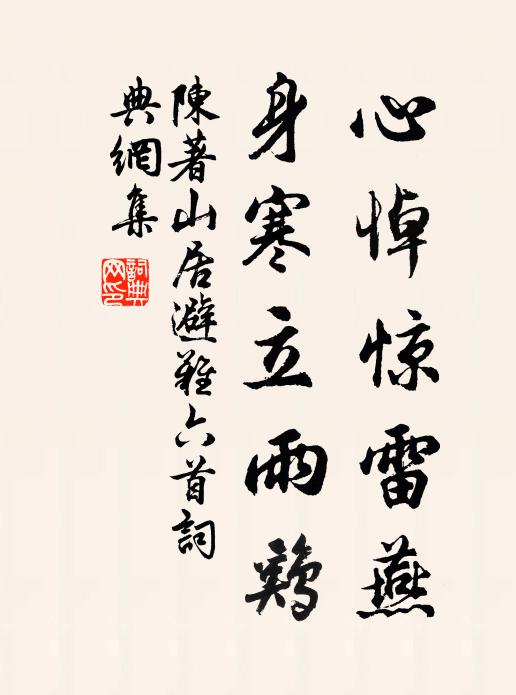 心悼惊雷燕
身寒立雨鷄
陳著山居避難六首詞
典網集
詞典网印